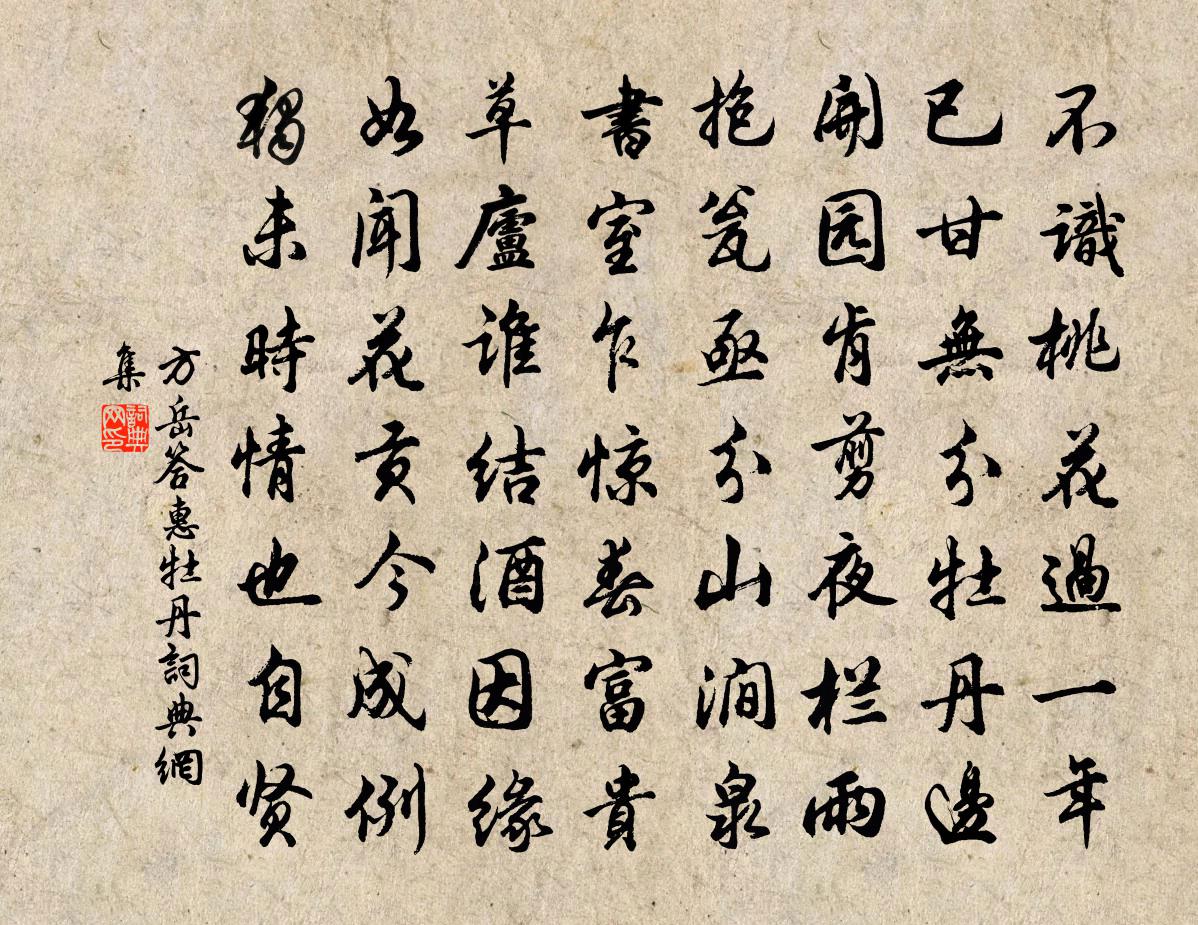 不識桃花過一年
已甘無分牡丹邊
開园肯剪夜栏雨
抱瓮亟分山澗泉
書室乍惊春富貴
草廬谁结酒因缘
如聞花贡今成例
獨未時情也自贤
方岳答惠牡丹詞典網
集
詞典
网印